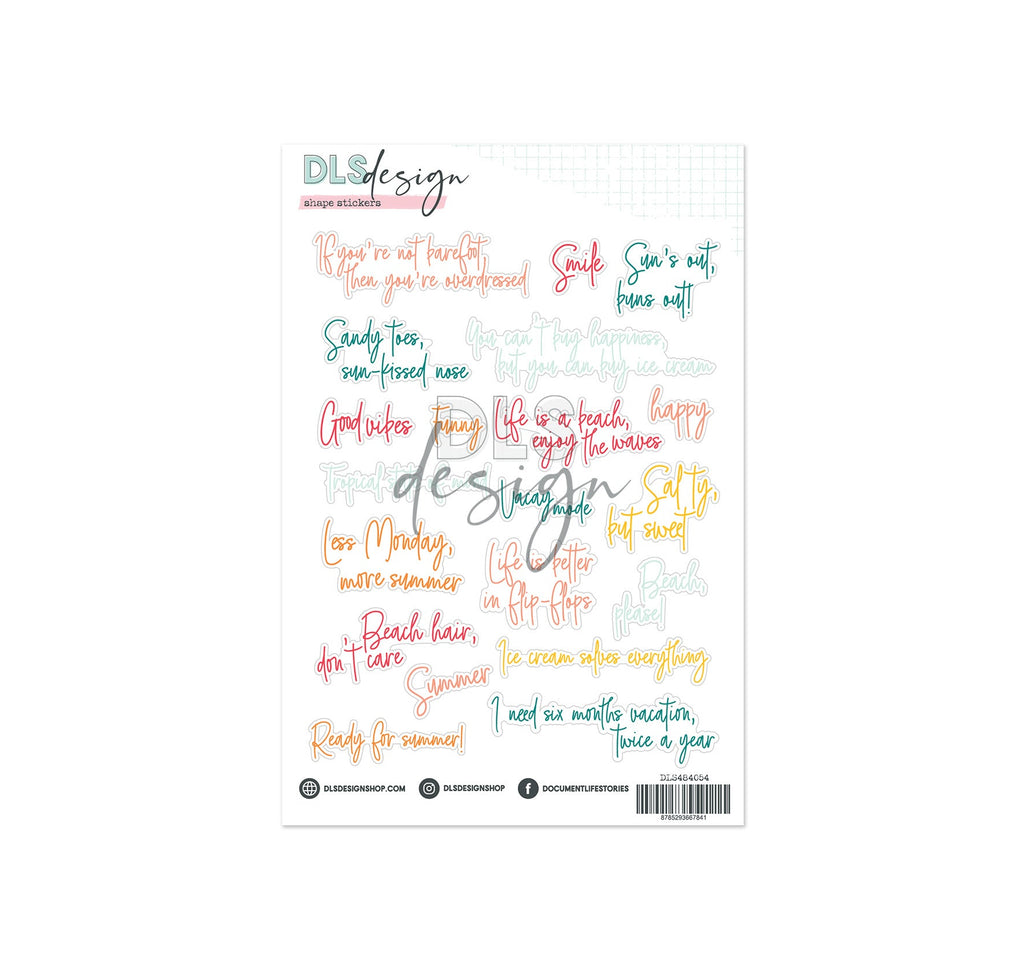 DLSdesign
shape stickers
If you're not barefoot,
then you're overdressed
Smile
Sun's out,
buns out!
Sandy toes,
sun-kissed nose
You can't buy happiness,
but you can buy ice cream
Good vibes
Funny
Life is a beach,
enjoy the waves
happy
DLS
design
Tropical
Vacay
mode
Salty,
but sweet
Less Monday,
more summer
Life is better
in flip-flops
Beach,
please!
Beach hair,
don't care
Summer
Ice cream solves everything
Ready for summer!
I need six months vacation,
twice a year
DLSDESIGNSHOP.COM
DLSDESIGNSHOP
DOCUMENTLIFESTORIES
DLS484054
8785293667841